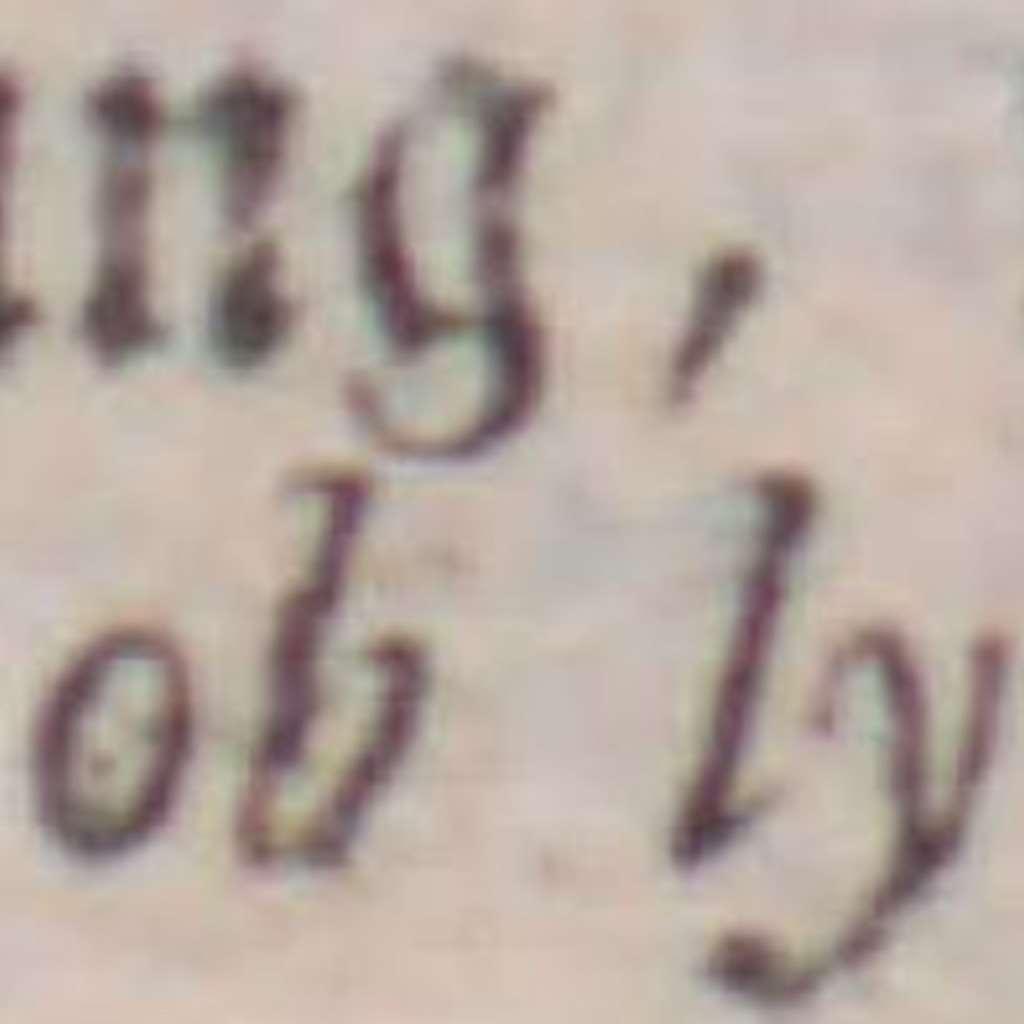 ung,
ob ly